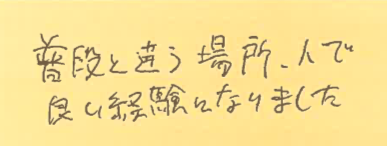 普段と違う場所、人で
良い経験になりました